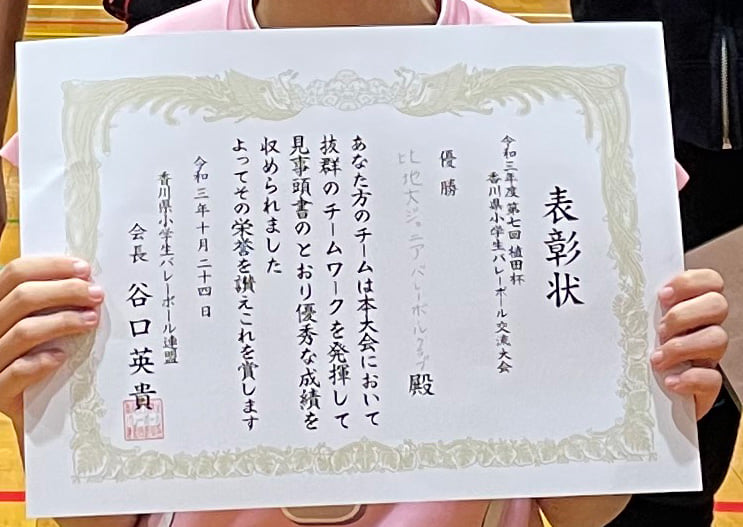 表彰状
令和三年度 第七回 植田杯
香川県小学生バレーボール交流大会
優勝
比地大ジュニアバレーボールクラブ 殿
あなた方のチームは本大会において
抜群のチームワークを発揮して
見事頭書のとおり優秀な成績を
収められました
よってその栄誉を讃えこれを賞します
令和三年十月二十四日
香川県小学生バレーボール連盟
会長 谷口英貴